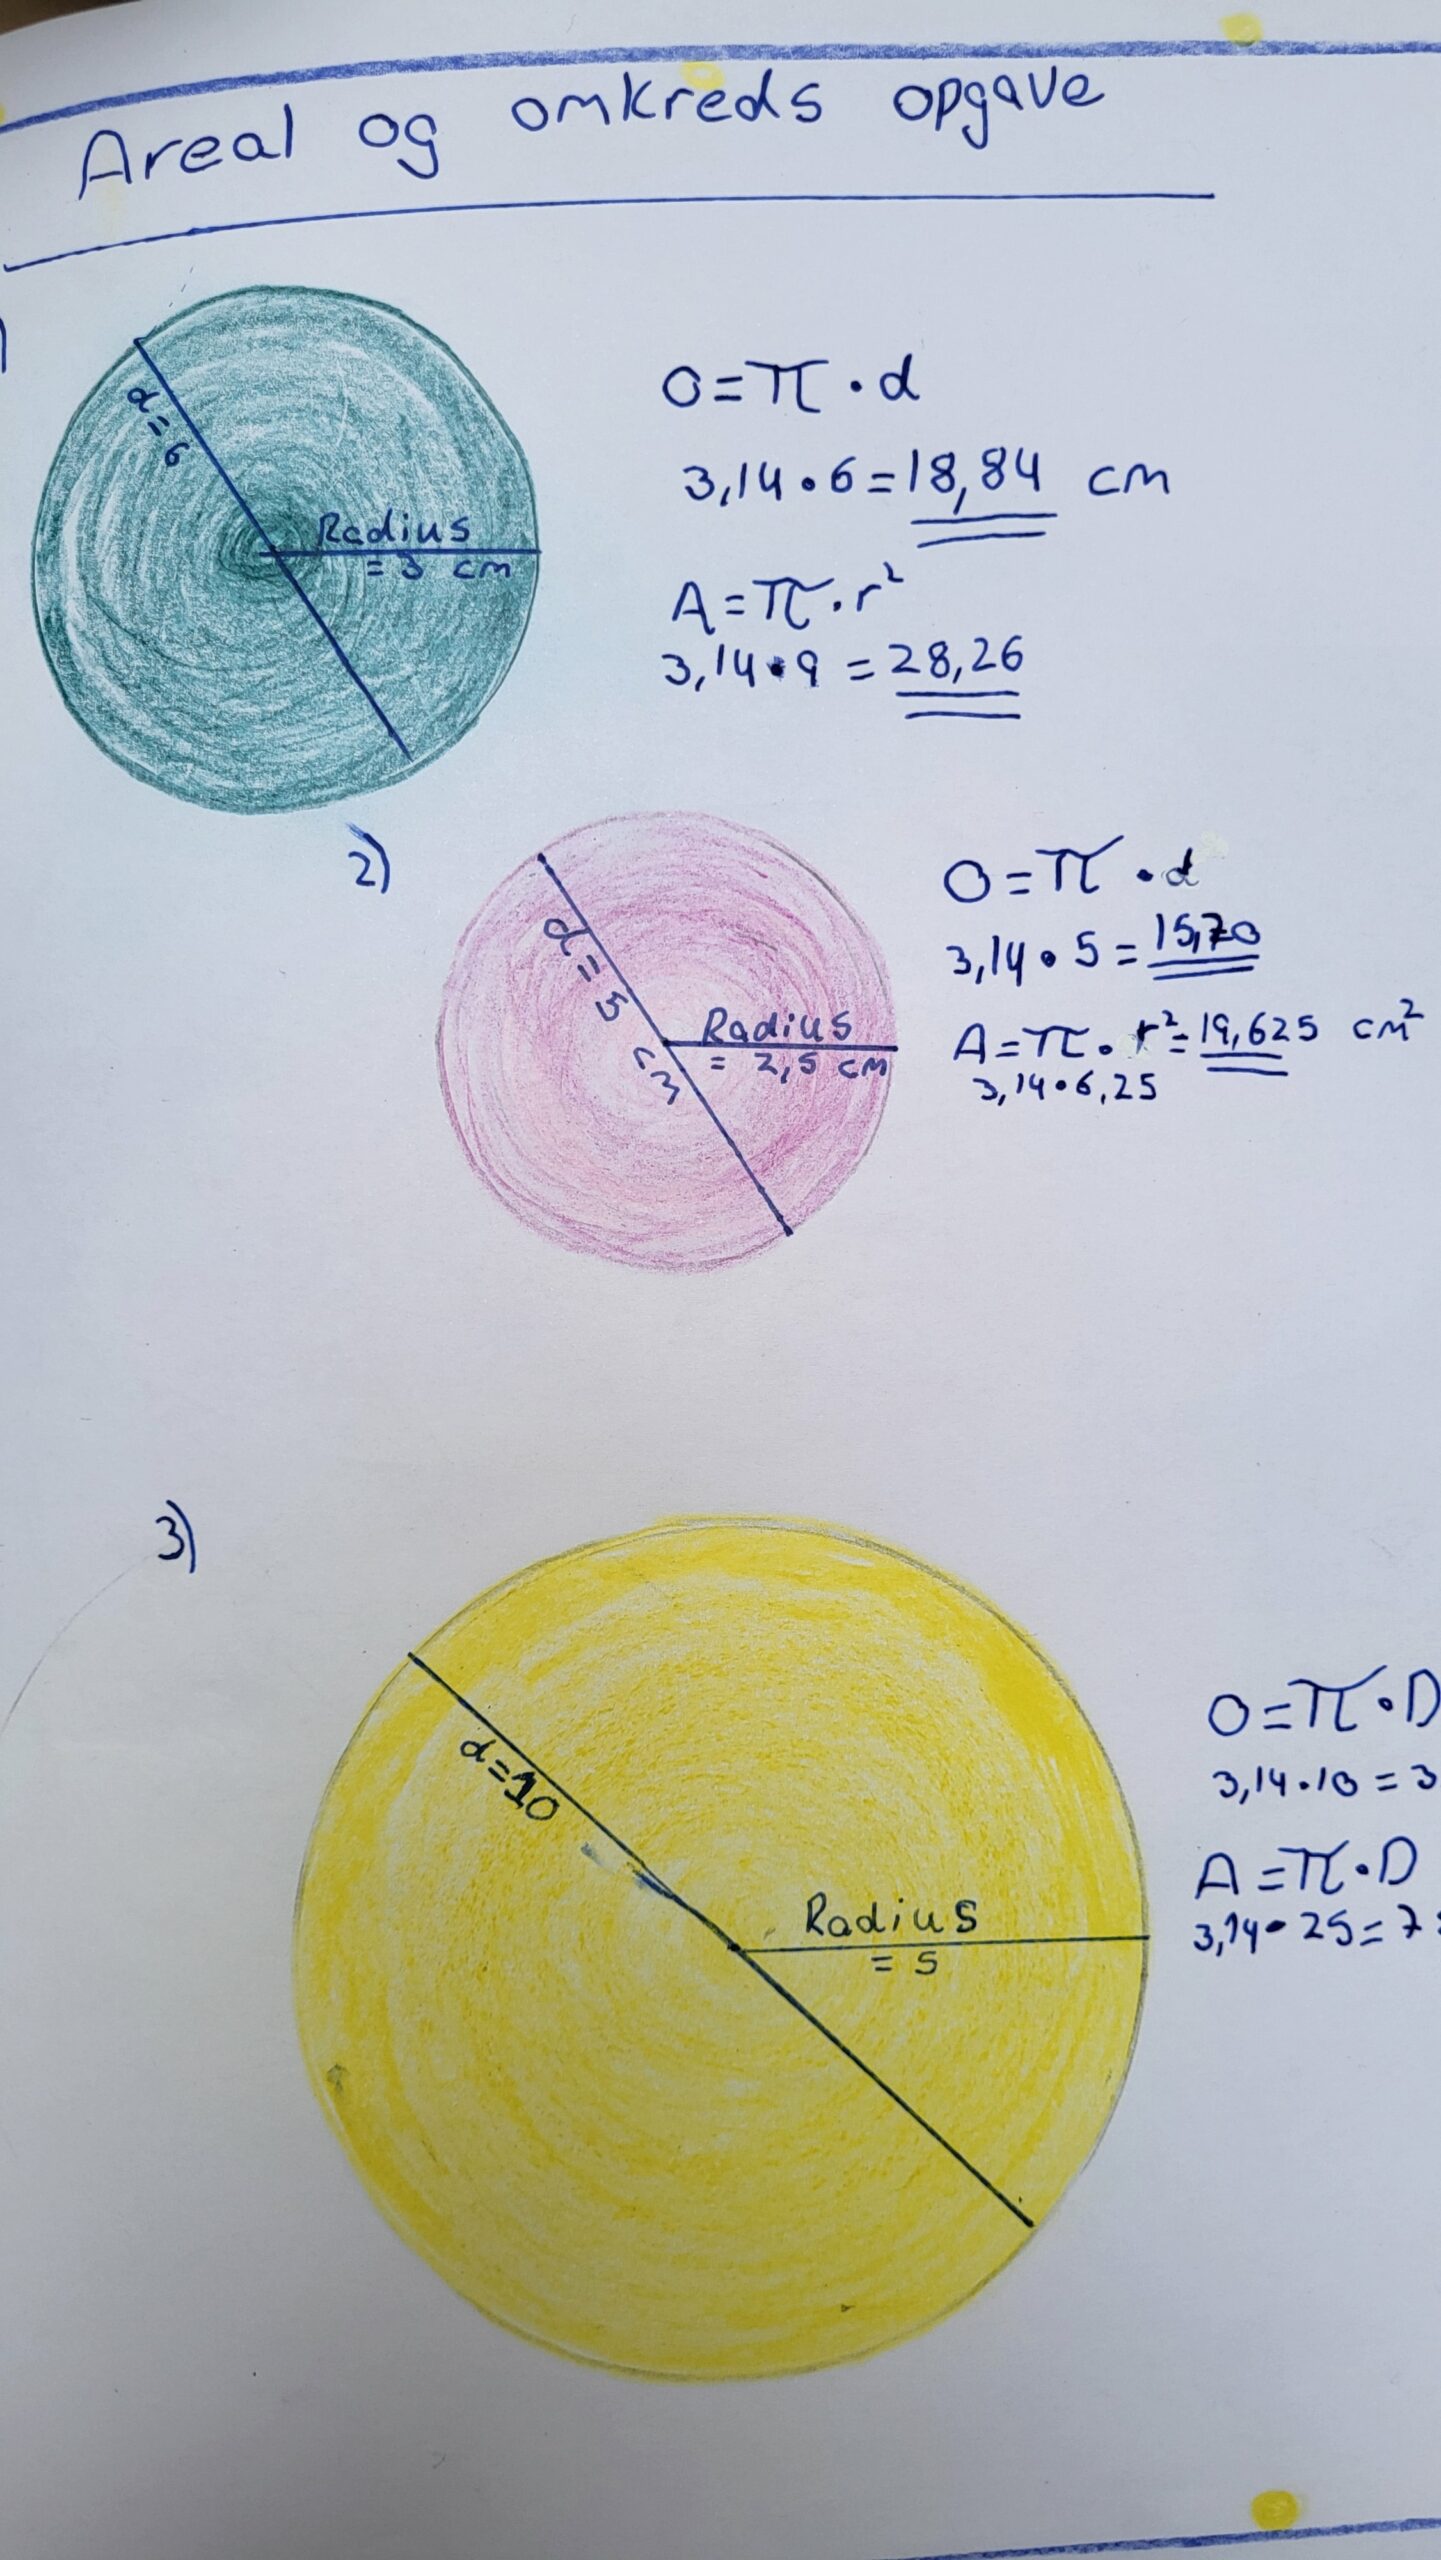 Areal og omkreds opgave
d=6
Radius
= 3 cm
O=π·d
3,14·6=18,84 cm
A=π·r²
3,14·9=28,26
2)
d=5
cm
Radius
= 2,5 cm
O=π·d
3,14·5=15,70
A=π·r²=19,625 cm²
3,14·6,25
3)
d=10
Radius
= 5
O=π·D
3,14·10=3
A=π·D
3,14·25=7